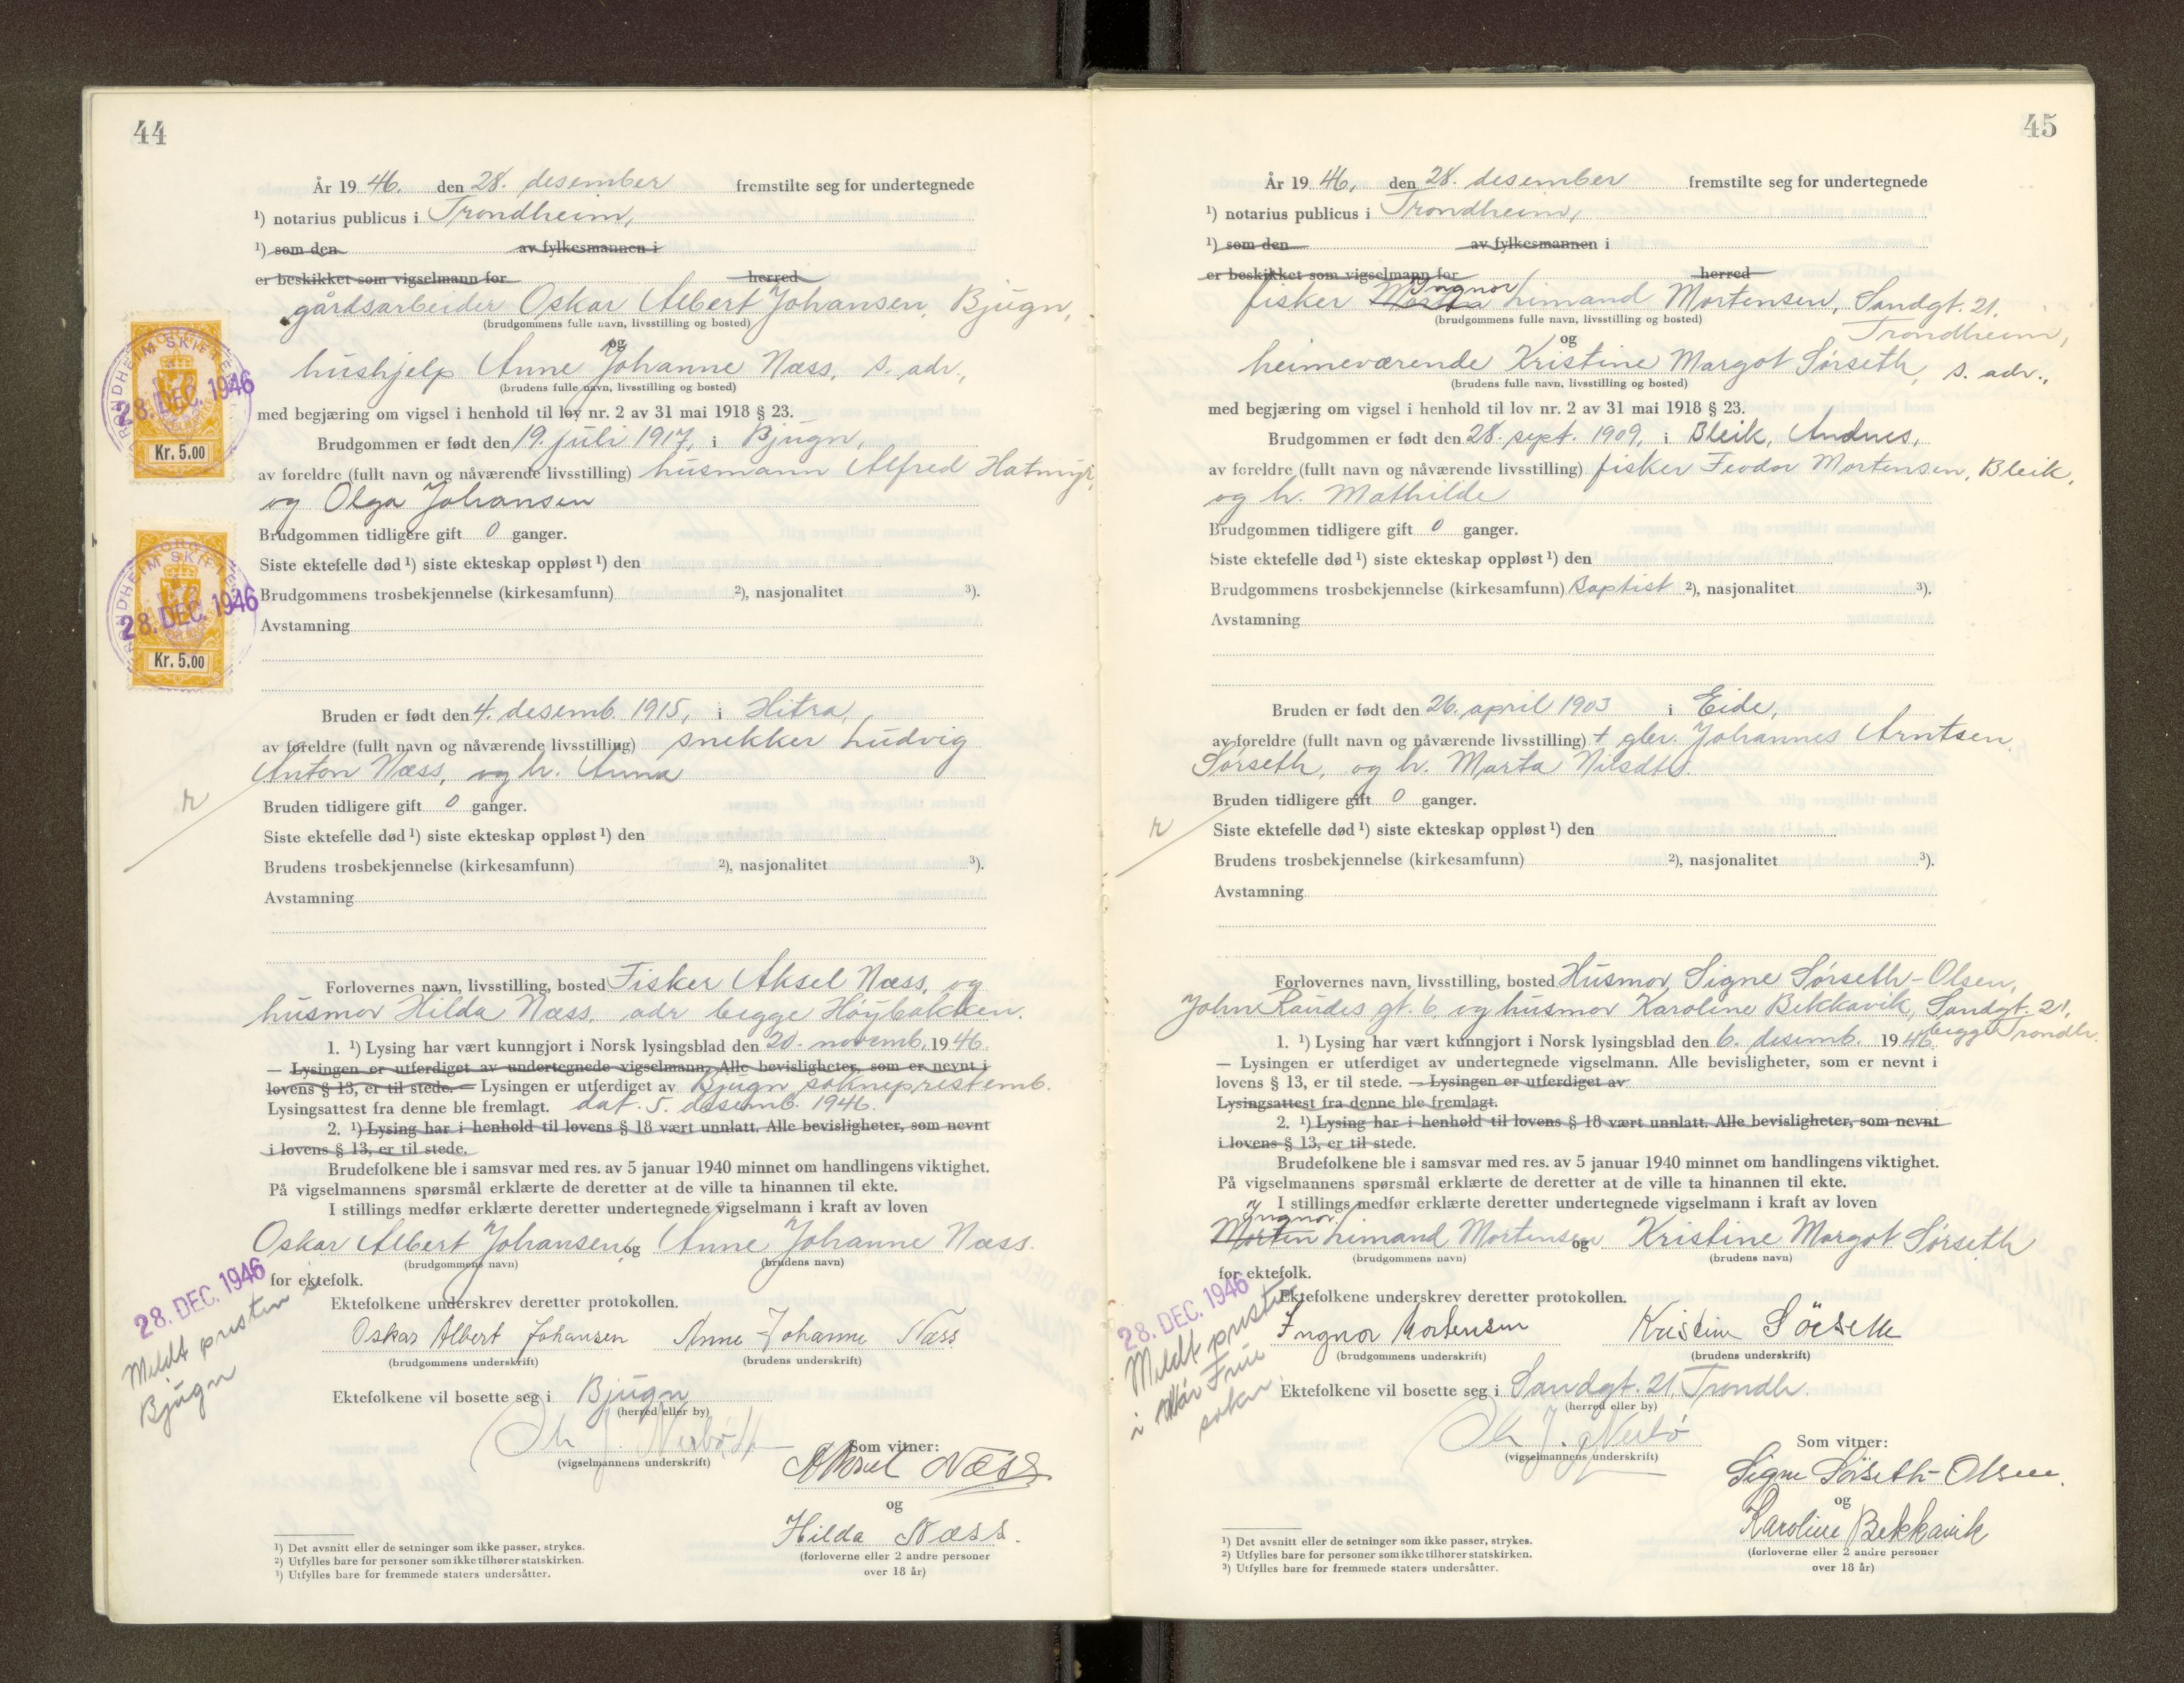 44
År 19 46. den 28. desember fremstilte seg for undertegnede
¹) notarius publicus i Trondheim,
¹) som den av fylkesmannen i
er beskikket som vigselmann for herred
gårdsarbeider Oskar Albert Johansen, Bjugn,
(brudgommens fulle navn, livsstilling og bosted)
og
hushjelp Anne Johanne Næss, s. adr.,
(brudens fulle navn, livsstilling og bosted)
med begjæring om vigsel i henhold til lov nr. 2 av 31 mai 1918 § 23.
Brudgommen er født den 19. juli 1917, i Bjugn,
av foreldre (fullt navn og nåværende livsstilling) husmann Alfred Hatmyr,
og Olga Johansen
Brudgommen tidligere gift 0 ganger.
Siste ektefelle død ¹) siste ekteskap oppløst ¹) den
Brudgommens trosbekjennelse (kirkesamfunn) ²), nasjonalitet ³).
Avstamning
Bruden er født den 4. desemb. 1915, i Hitra,
av foreldre (fullt navn og nåværende livsstilling) snekker Ludvig
Anton Næss, og h. Anna
Bruden tidligere gift 0 ganger.
Siste ektefelle død ¹) siste ekteskap oppløst ¹) den
Brudens trosbekjennelse (kirkesamfunn) ²), nasjonalitet ³).
Avstamning
Forlovernes navn, livsstilling, bosted Fisker Aksel Næss, og
husmor Hilda Næss, adr begge Høybakken.
1. ¹) Lysing har vært kunngjort i Norsk lysingsblad den 20. novemb. 19 46.
— Lysingen er utferdiget av undertegnede vigselmann. Alle bevisligheter, som er nevnt i
lovens § 13, er til stede. — Lysingen er utferdiget av Bjugn sokneprestemb.
Lysingsattest fra denne ble fremlagt. dat. 5. desemb. 1946.
2. ¹) Lysing har i henhold til lovens § 18 vært unnlatt. Alle bevisligheter, som nevnt
i lovens § 13, er til stede.
Brudefolkene ble i samsvar med res. av 5 januar 1940 minnet om handlingens viktighet.
På vigselmannens spørsmål erklærte de deretter at de ville ta hinannen til ekte.
I stillings medfør erklærte deretter undertegnede vigselmann i kraft av loven
Oskar Albert Johansen og Anne Johanne Næss.
(brudgommens navn) (brudens navn)
for ektefolk.
Ektefolkene underskrev deretter protokollen.
Oskar Albert Johansen Anne Johanne Næss
(brudgommens underskrift) (brudens underskrift)
Ektefolkene vil bosette seg i Bjugn
(herred eller by)
(vigselmannens underskrift)
Som vitner:
Aksel Næss
og
Hilda Næss.
(forloverne eller 2 andre personer
over 18 år)
¹) Det avsnitt eller de setninger som ikke passer, strykes.
²) Utfylles bare for personer som ikke tilhører statskirken.
³) Utfylles bare for fremmede staters undersåtter.
28. DEC. 1946
Kr. 5.00
28. DEC. 1946
Kr. 5.00
28. DEC. 1946
Meldt presten i
Bjugn
45
År 19 46, den 28. desember fremstilte seg for undertegnede
¹) notarius publicus i Trondheim,
¹) som den av fylkesmannen i
er beskikket som vigselmann for herred
Ingnor
fisker Limand Mortensen, Sandgt. 21,
(brudgommens fulle navn, livsstilling og bosted)
Trondheim,
og
heimeværende Kristine Margot Sørseth, s. adr.,
(brudens fulle navn, livsstilling og bosted)
med begjæring om vigsel i henhold til lov nr. 2 av 31 mai 1918 § 23.
Brudgommen er født den 28. sept. 1909, i Bleik, Andnes,
av foreldre (fullt navn og nåværende livsstilling) fisker Feodor Mortensen, Bleik,
og h. Mathilde
Brudgommen tidligere gift 0 ganger.
Siste ektefelle død ¹) siste ekteskap oppløst ¹) den
Brudgommens trosbekjennelse (kirkesamfunn) Baptist ²), nasjonalitet ³).
Avstamning
Bruden er født den 26. april 1903 i Eide,
av foreldre (fullt navn og nåværende livsstilling) + gbr. Johannes Arntsen
Sørseth, og h. Marta Nilsdtr.
Bruden tidligere gift 0 ganger.
Siste ektefelle død ¹) siste ekteskap oppløst ¹) den
Brudens trosbekjennelse (kirkesamfunn) ²), nasjonalitet ³).
Avstamning
Forlovernes navn, livsstilling, bosted Husmor Signe Sørseth-Olsen,
gt. 6, og husmor Karoline Bekkavik, Sandgt. 21,
begge Trondh.
1. ¹) Lysing har vært kunngjort i Norsk lysingsblad den 6. desemb. 19 46.
— Lysingen er utferdiget av undertegnede vigselmann. Alle bevisligheter, som er nevnt i
lovens § 13, er til stede. — Lysingen er utferdiget av
Lysingsattest fra denne ble fremlagt.
2. ¹) Lysing har i henhold til lovens § 18 vært unnlatt. Alle bevisligheter, som nevnt
i lovens § 13, er til stede.
Brudefolkene ble i samsvar med res. av 5 januar 1940 minnet om handlingens viktighet.
På vigselmannens spørsmål erklærte de deretter at de ville ta hinannen til ekte.
I stillings medfør erklærte deretter undertegnede vigselmann i kraft av loven
Ingnor
Morten Limand Mortensen og Kristine Margot Sørseth
(brudgommens navn) (brudens navn)
for ektefolk.
Ektefolkene underskrev deretter protokollen.
Ingnor Mortensen Kristine Sörseth
(brudgommens underskrift) (brudens underskrift)
Ektefolkene vil bosette seg i Sandgt. 21, Trondh.
(herred eller by)
(vigselmannens underskrift)
Som vitner:
Signe Sörseth-Olsen.
og
Karoline Bekkavik
(forloverne eller 2 andre personer
over 18 år)
¹) Det avsnitt eller de setninger som ikke passer, strykes.
²) Utfylles bare for personer som ikke tilhører statskirken.
³) Utfylles bare for fremmede staters undersåtter.
28. DEC. 1946
Meldt presten
i Vår Frue
sokn